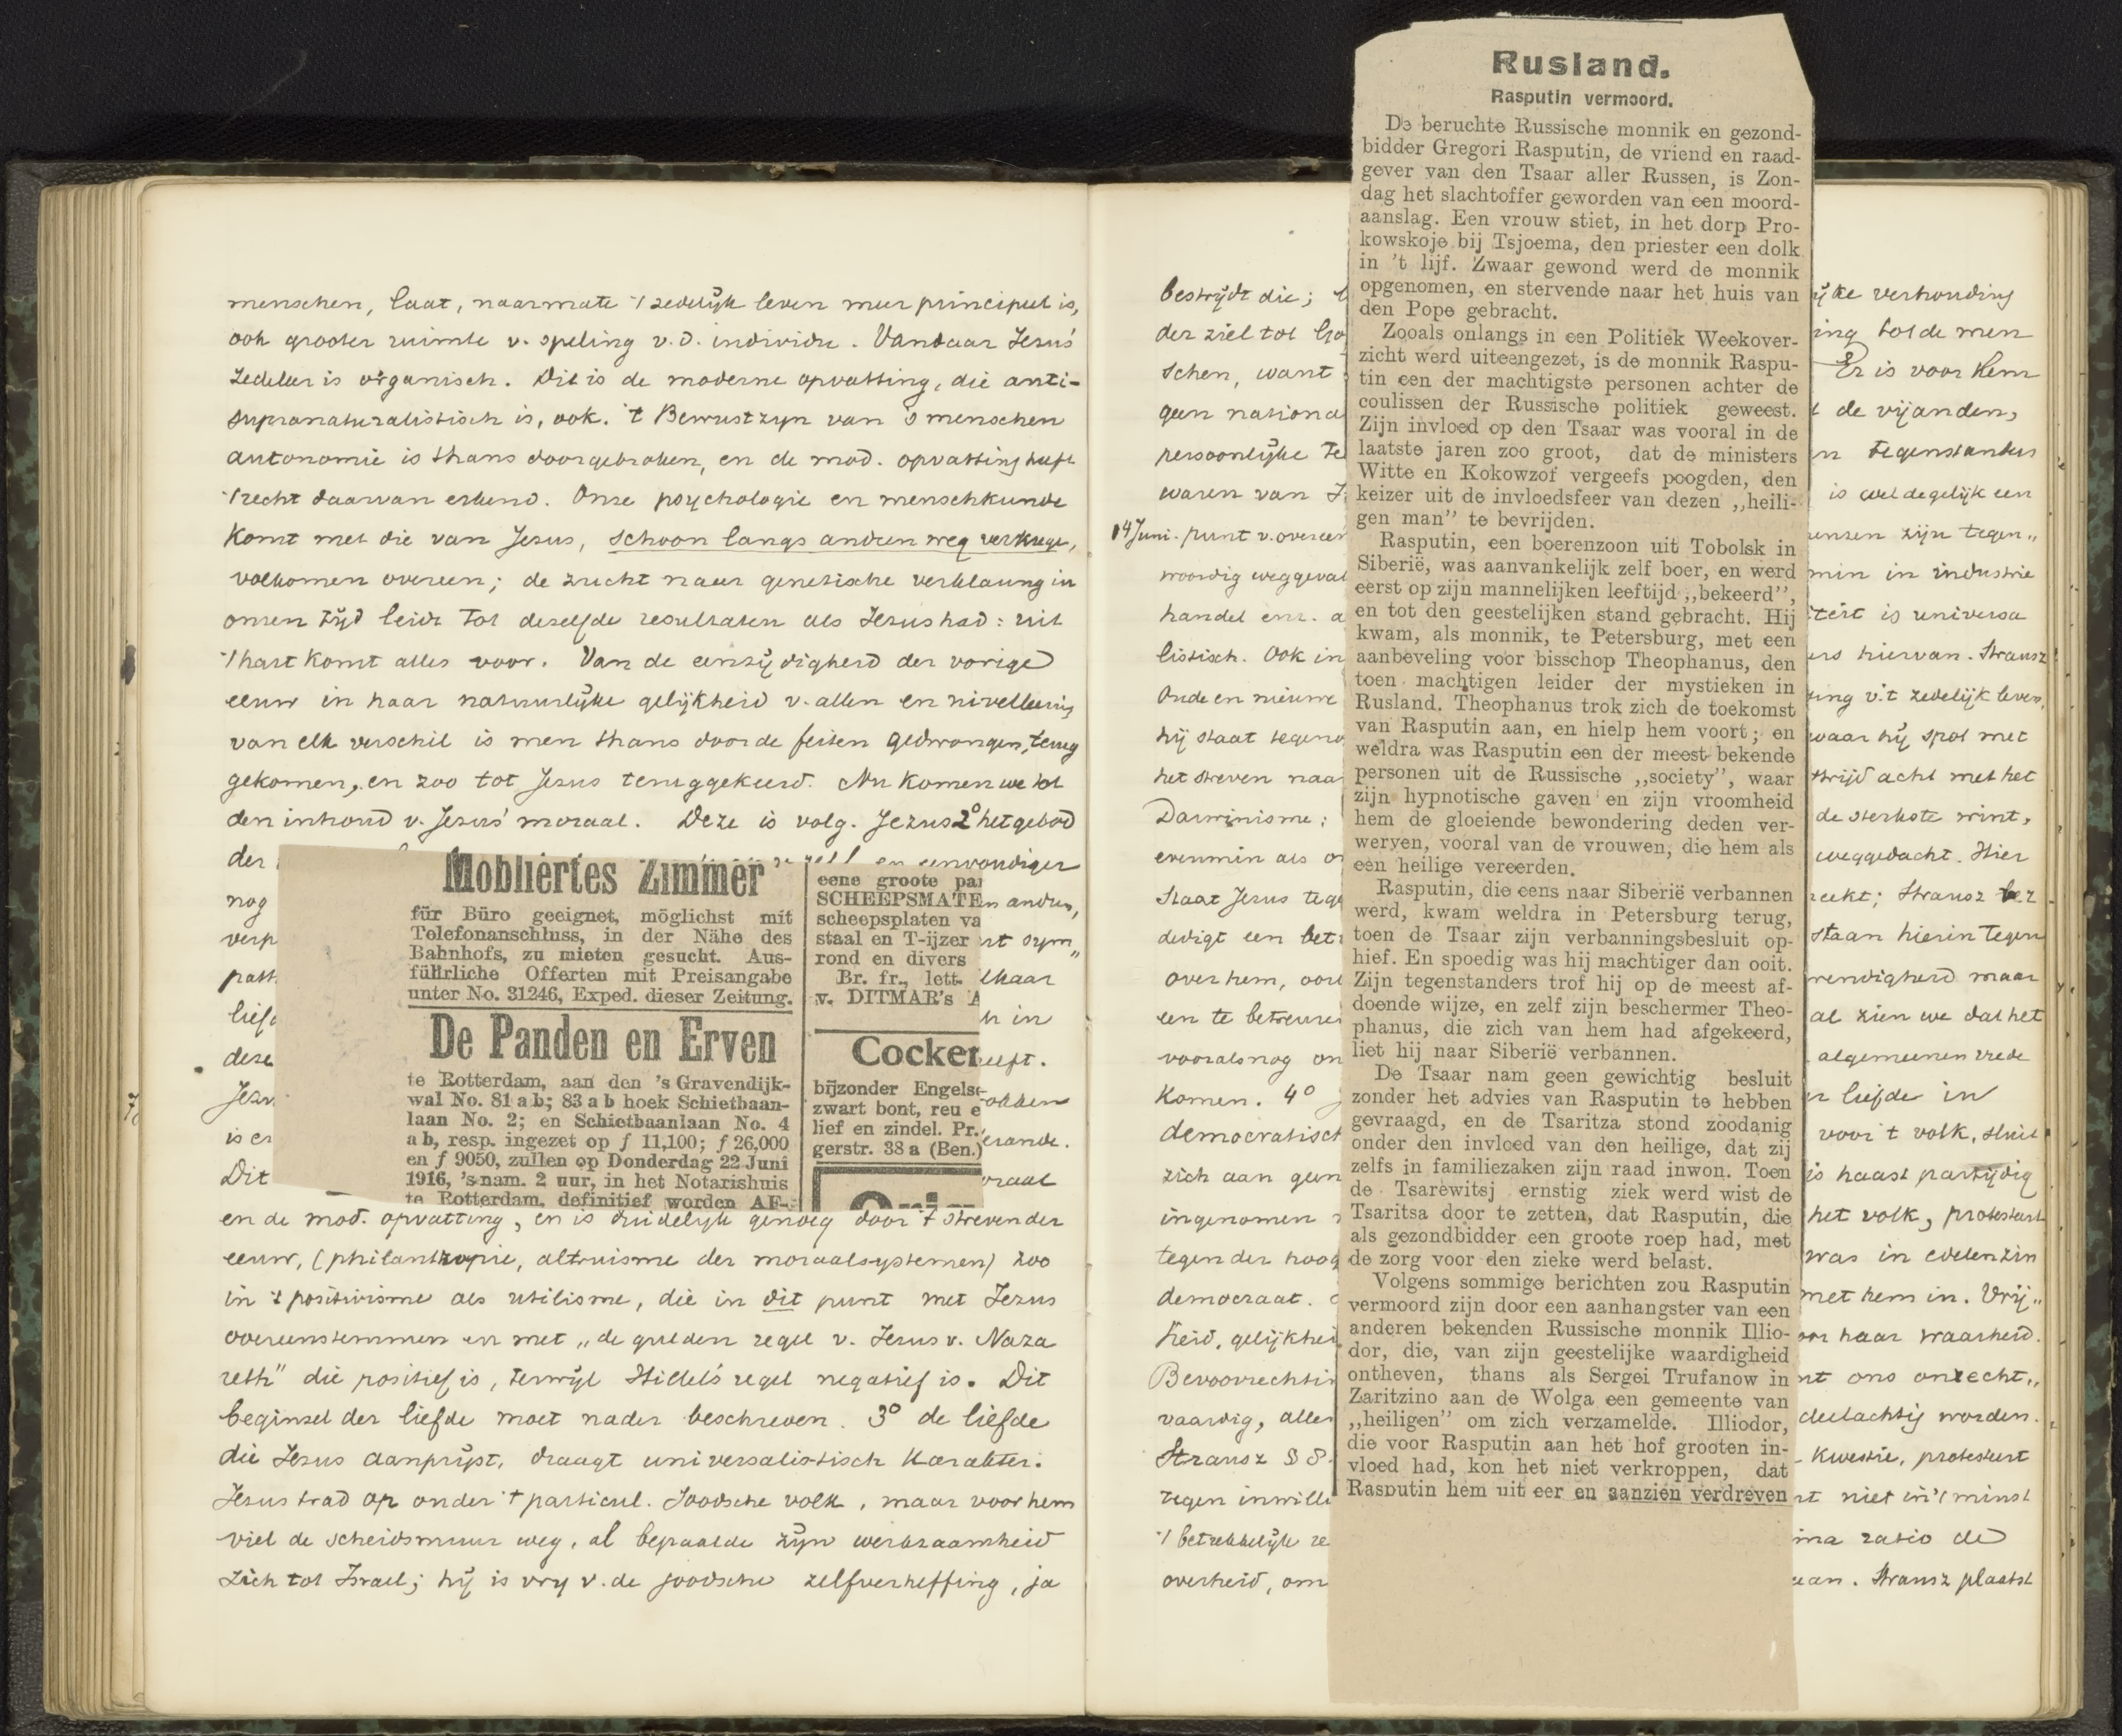 menschen, laat, naarmate 't zedelijk leven meer principieel is,
ook grooter ruimte v. speling v.d. individu. Vandaar Jezus'
zedeleer is organisch. Dit is de moderne opvatting, die anti-
supranaturalistisch is, ook. 't Bewustzijn van 's menschen
autonomie is thans doorgebroken, en de mod. opvatting heeft
't recht daarvan erkend. Onze psychologie en menschkunde
komt met die van Jesus, schoon langs anderen weg verkregen,
volkomen overeen; de zucht naar genetische verklaring in
onzen tijd leidt tot dezelfde resultaten als Jezus had: uit
't hart komt alles voor. Van de eenzijdigheid der vorige
eeuw in haar natuurlijke gelijkheid v. allen en nivelleering
van elk verschil is men thans door de feiten gedwongen, terug
gekomen, en zoo tot Jezus teruggekeerd. Nu komen we tot
den inhoud v. Jezus' moraal. Deze is volg. Jezus 2° het gebod
der
en eenvoudiger
nog
n ander,
verp
nt sym„
patt
lkaar
liefd
n in
deze
eeft.
Jezu
okken
is er
erande.
Dit
oraal
Möbliertes Zimmer
für Büro geeignet, möglichst mit
Telefonanschluss, in der Nähe des
Bahnhofs, zu mieten gesucht. Aus-
führliche Offerten mit Preisangabe
unter No. 31246, Exped. dieser Zeitung.
De Panden en Erven
te Rotterdam, aan den 's Gravendijk-
wal No. 81 a b; 83 a b hoek Schietbaan-
laan No. 2; en Schietbaanlaan No. 4
a b, resp. ingezet op f 11,100; f 26,000
en f 9050, zullen op Donderdag 22 Juni
1916, 's nam. 2 uur, in het Notarishuis
te Rotterdam, definitief worden AF-
eene groote pa
SCHEEPSMATE
scheepsplaten va
staal en T-ijzer
rond en divers
Br. fr., lett.
v. DITMAR's A
Cocker
bijzonder Engels
zwart bont, reu e
lief en zindel. Pr.
gerstr. 38 a (Ben.)
en de mod. opvatting, en is duidelijk genoeg door 't streven der
eeuw, (philanthropie, altruisme der moraalsystemen) zoo
in 't positivisme als utilisme, die in dit punt met Jezus
overeenstemmen en met „de gulden regel v. Jezus v. Naza
reth" die positief is, terwijl Hillel's regel negatief is. Dit
beginsel der liefde moet nader beschreven. 3° de liefde
die Jesus aanprijst, draagt universalistisch karakter.
Jezus trad op onder 't particul. Joodsche volk, maar voor hem
viel de scheidsmuur weg, al bepaalde zijn werkzaamheid
zich tot Israel; hij is vrij v. de joodsche zelfverheffing, ja
bestrijdt die;
ijke verhouding
der ziel tot Go
ing tot de men
schen, want
Er is voor hem
geen nationa
de vijanden,
persoonlijke te
n tegenstanders
waren van J
is wel degelijk een
14 Juni. punt v. overeen
ensen zijn tegen„
woordig weggeval
min in industrie
handel enz. a
teit is universa
listisch. Ook in
ers hiervan. Strausz
Oude en nieuwe
ing v. 't zedelijk leven,
hij staat tegeno
waar hij spot met
het streven naa
strijd acht met het
Darwinisme:
de sterkste wint,
evenmin als o
weggedacht. Hier
staat Jezus tege
reekt; Strausz
dedigt een bet
staan hierin tegen
over hem, oorl
wendigheid maar
een te betreure
al zien we dat het
vooralsnog on
algemeenen vrede
komen. 4°
n liefde in
democratisch
voor 't volk, sluit
zich aan geen
is haast partijdig
ingenomen
het volk, protestant
tegen der hoog
was in edelen zin
democraat.
met hem in. Vrij„
heid, gelijkhei
oor haar waarheid.
Bevoorrechti
nt ons onrecht„
vaardig, aller
deelachtig worden.
Strausz
kwestie, protesteert
tegen inwill
niet in 't minst
't betrekkelijk re
ma ratio de
overheid, om
aan. Strausz plaatst
Rusland.
Rasputin vermoord.
De beruchte Russische monnik en gezond-
bidder Gregori Rasputin, de vriend en raad-
gever van den Tsaar aller Russen, is Zon-
dag het slachtoffer geworden van een moord-
aanslag. Een vrouw stiet, in het dorp Pro-
kowskoje bij Tsjoema, den priester een dolk
in 't lijf. Zwaar gewond werd de monnik
opgenomen, en stervende naar het huis van
den Pope gebracht.
Zooals onlangs in een Politiek Weekover-
zicht werd uiteengezet, is de monnik Raspu-
tin een der machtigste personen achter de
coulissen der Russische politiek geweest.
Zijn invloed op den Tsaar was vooral in de
laatste jaren zoo groot, dat de ministers
Witte en Kokowzof vergeefs poogden, den
keizer uit de invloedsfeer van dezen ,,heili-
gen man'' te bevrijden.
Rasputin, een boerenzoon uit Tobolsk in
Siberië, was aanvankelijk zelf boer, en werd
eerst op zijn mannelijken leeftijd ,,bekeerd'',
en tot den geestelijken stand gebracht. Hij
kwam, als monnik, te Petersburg, met een
aanbeveling voor bisschop Theophanus, den
toen machtigen leider der mystieken in
Rusland. Theophanus trok zich de toekomst
van Rasputin aan, en hielp hem voort; en
weldra was Rasputin een der meest bekende
personen uit de Russische ,,society'', waar
zijn hypnotische gaven en zijn vroomheid
hem de gloeiende bewondering deden ver-
werven, vooral van de vrouwen, die hem als
een heilige vereerden.
Rasputin, die eens naar Siberië verbannen
werd, kwam weldra in Petersburg terug,
toen de Tsaar zijn verbanningsbesluit op-
hief. En spoedig was hij machtiger dan ooit.
Zijn tegenstanders trof hij op de meest af-
doende wijze, en zelf zijn beschermer Theo-
phanus, die zich van hem had afgekeerd,
liet hij naar Siberië verbannen.
De Tsaar nam geen gewichtig besluit
zonder het advies van Rasputin te hebben
gevraagd, en de Tsaritza stond zoodanig
onder den invloed van den heilige, dat zij
zelfs in familiezaken zijn raad inwon. Toen
de Tsarewitsj ernstig ziek werd wist de
Tsaritsa door te zetten, dat Rasputin, die
als gezondbidder een groote roep had, met
de zorg voor den zieke werd belast.
Volgens sommige berichten zou Rasputin
vermoord zijn door een aanhangster van een
anderen bekenden Russische monnik Illio-
dor, die, van zijn geestelijke waardigheid
ontheven, thans als Sergei Trufanow in
Zaritzino aan de Wolga een gemeente van
,,heiligen'' om zich verzamelde. Illiodor,
die voor Rasputin aan het hof grooten in-
vloed had, kon het niet verkroppen, dat
Rasputin hem uit eer en aanzien verdreven